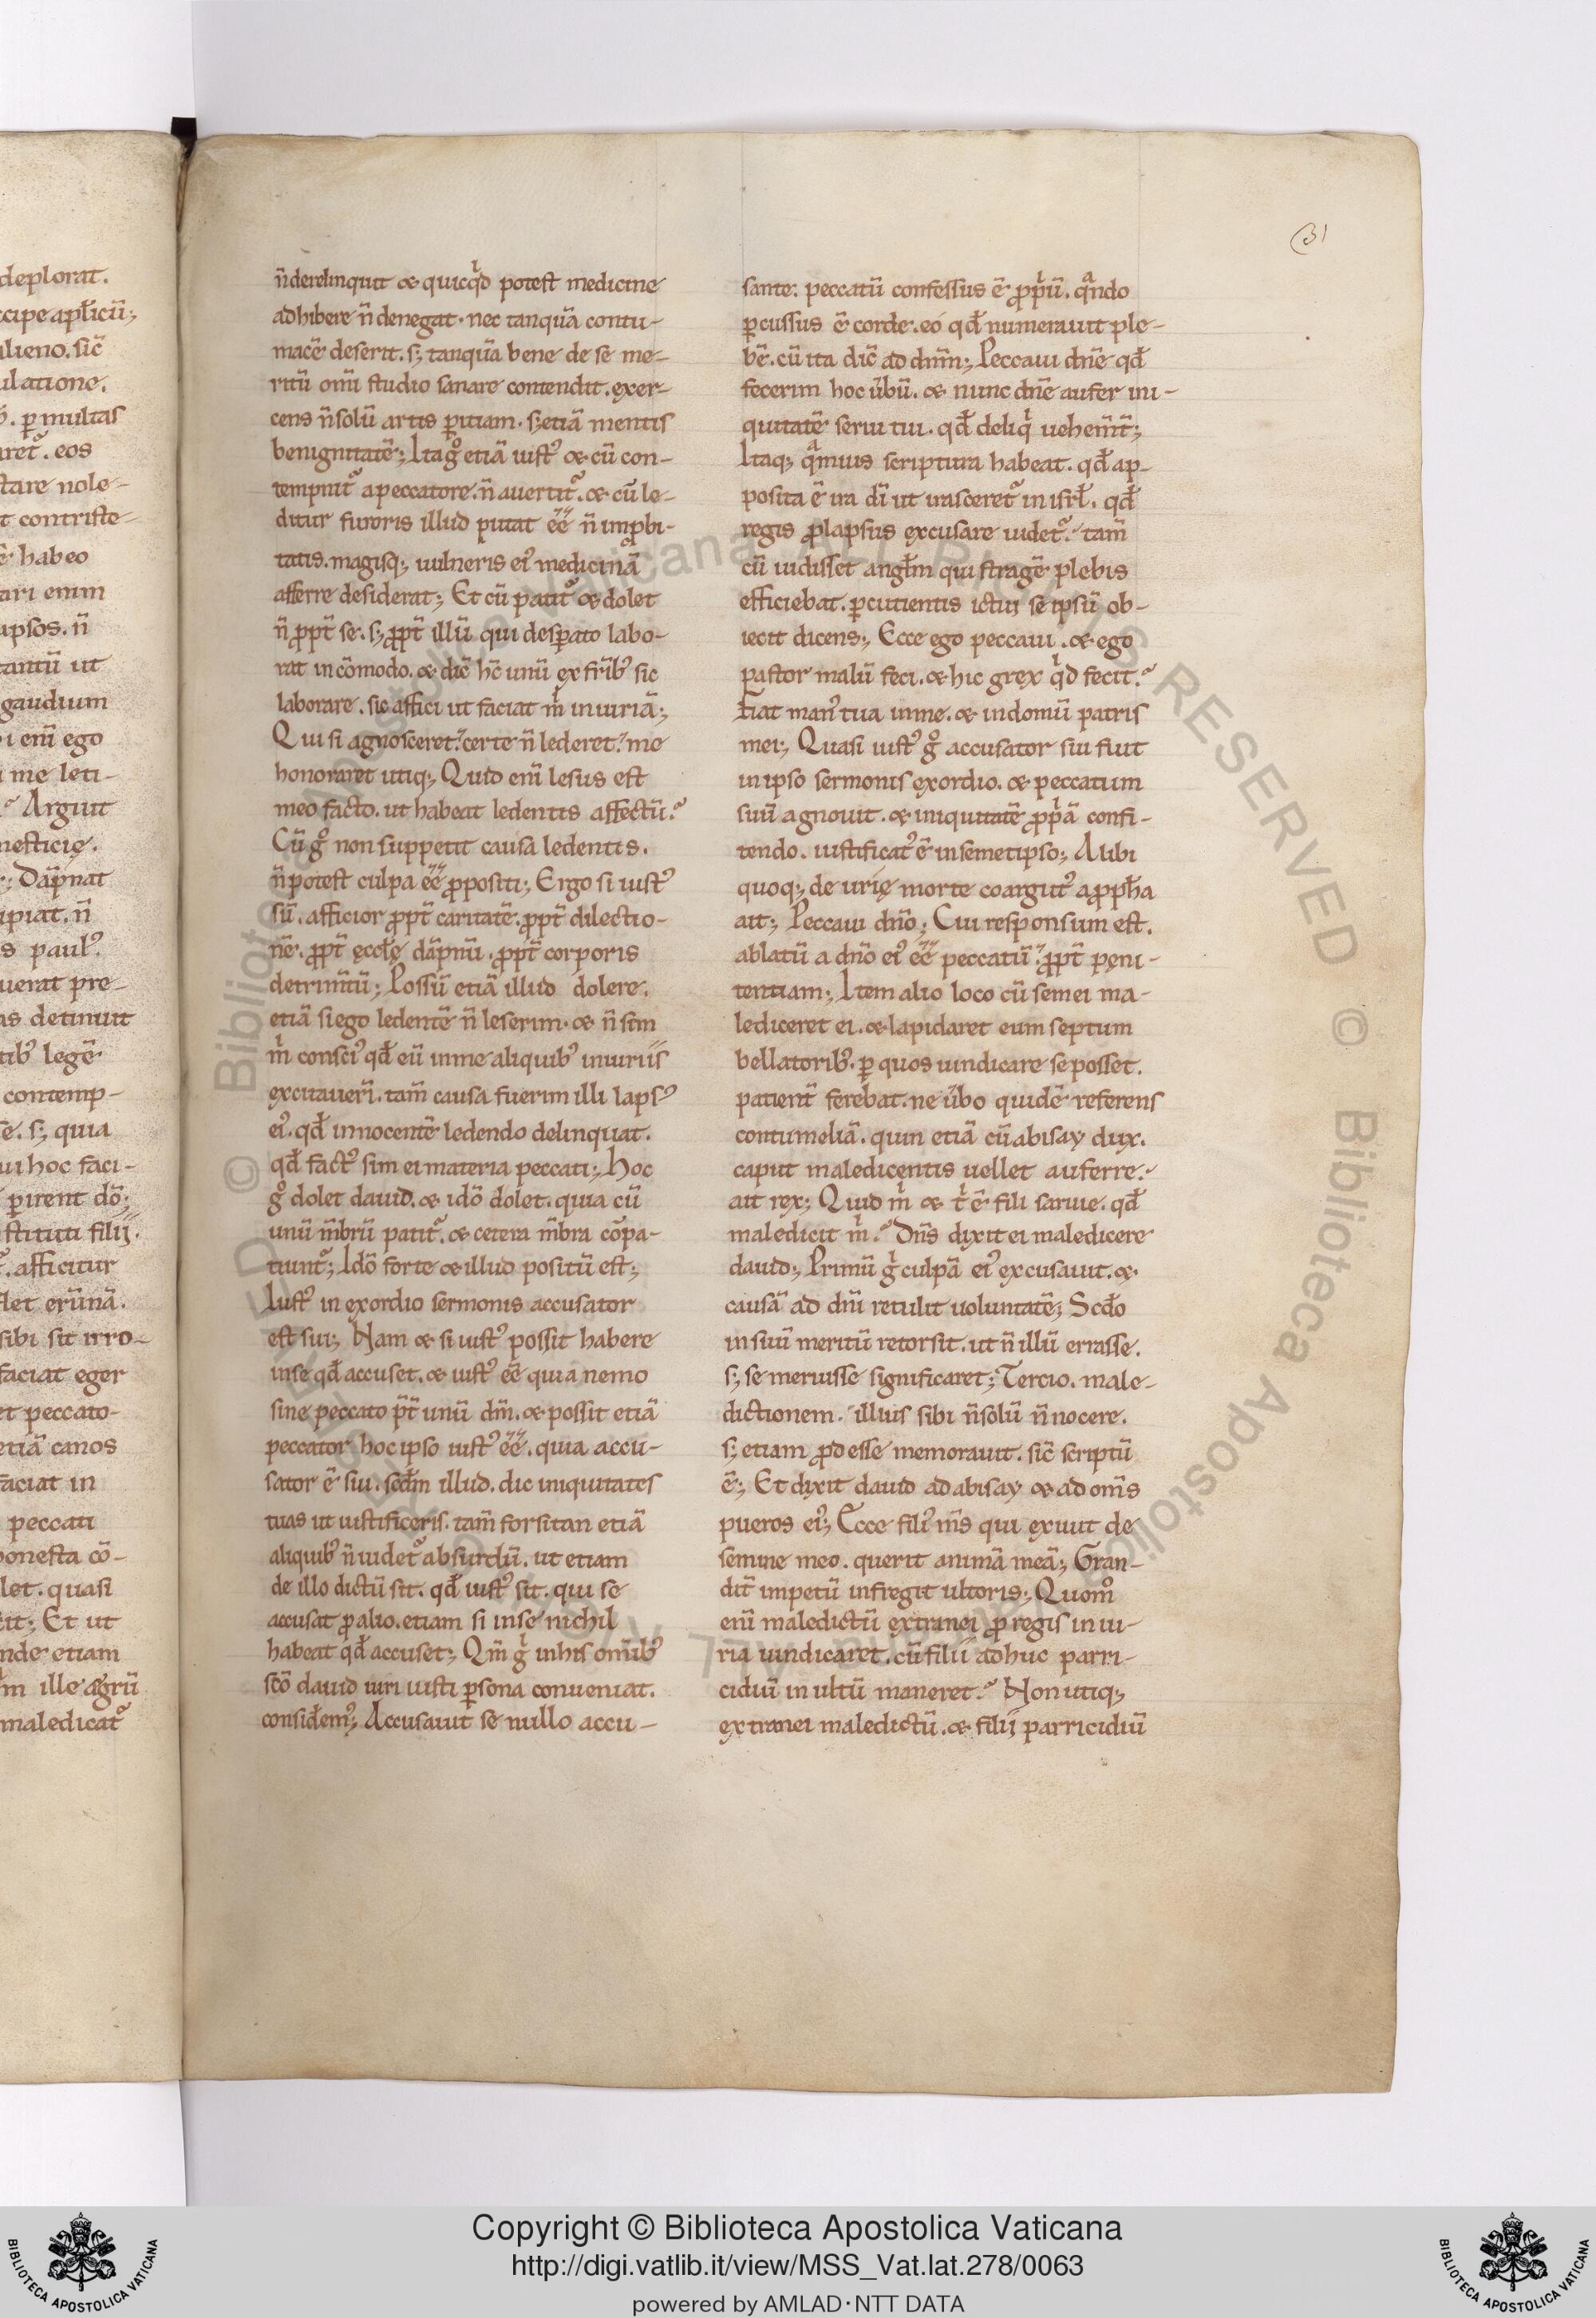 deplorat.
cipe apłicũ;
alieno. sic̃
ulatione.
. ꝑ multas
aret᷑. eos
stare nole-
t contriste-
ẽ habeo
ari enim
apsos. ñ
tantũ ut
gaudium
i enĩ ego
i me leti-
Arguit
mesticie.
Dãpnat
ipiat. ñ
s paulꝰ
uerat pre-
as detinuit
tibꝰ legẽ
contemp-
se. s; quia
ui hoc faci-
ꝑirent dõ;
stituti filij.
afficitur
flet erũnã.
sibi sit irro-
faciat eger
et peccato-
etiã canos
faciat in
peccati
onesta cõ-
let. quasi
it; Et ut
nde etiam
m ille agrũ
maledicat᷑
31
ñ derelinquit & quicqͥd potest medicine
adhibere ñ denegat. nec tanquã contu-
macẽ deserit. s; tanquã bene de se me-
ritũ omĩ studio sanare contendit. exer-
cens ñ solũ artis ꝑitiam. s; etiã mentis
benignitatẽ; Itagͦ etiã iustꝰ & cũ con-
tempnit᷑ a peccatore. ñ auertit᷑. & cũ le-
ditur furoris illud putat ẽẽ ñ imꝓbi-
tatis. magisq; uulneris eiꝰ medicinã
afferre desiderat; Et cũ patit᷑ & dolet
ñ ꝓpt̃ se. s; ꝓpt̃ illũ qui desꝑato labo-
rat incõmodo. & dic̃ hc̃ unũ ex fr̃ibꝰ sic
laborare. sic affici ut faciat mͥ iniuriã;
Qui si agnosceret. certe ñ lederet. me
honoraret utiq; Quid enĩ lesus est
meo facto. ut habeat ledentis affectũ.
Cũ gͦ non suppetit causa ledentis.
ñ potest culpa ẽẽ ꝓpositi; Ergo si iustꝰ
sũ. afficior ꝓpt̃ caritatẽ. ꝓpt̃ dilectio-
nẽ. ꝓpt̃ ęccłę dãpnũ. ꝓpt̃ corporis
detrim̃tũ; Possũ etiã illud dolere.
etiã si ego ledentẽ ñ leserim. & ñ sim
mͥ consciꝰ qđ eũ in me aliquibꝰ iniuriis
excitauerĩ. tam̃ causa fuerim illi lapsꝰ
eiꝰ. qđ innocentẽ ledendo delinquat.
qđ factꝰ sim ei materia peccati; Hoc
gͦ dolet dauid. & idõ dolet. quia cũ
unũ m̃brũ patit᷑. & cetera m̃bra cõpa-
tiunt᷑; Idõ forte & illud positũ est;
Iustꝰ in exordio sermonis accusator
est sui; Nam & si iustꝰ possit habere
in se qđ accuset. & iustꝰ eẽ quia nemo
sine peccato p̃t̃ unũ dm̃. & possit etiã
peccator hoc ipso iustꝰ ẽẽ. quia accu-
sator ẽ sui. scđm illud. dic iniquitates
tuas ut iustificeris. tam̃ forsitan etiã
aliquibꝰ ñ uidet᷑ absurdũ. ut etiam
de illo dictũ sit. qđ iustꝰ sit. qui se
accusat ꝓ alio. etiam si in se nichil
habeat qđ accuset; Qm̃ gͥ in his omĩbꝰ
scõ dauid iuri iusti ꝑsona conueniat.
considemꝰ; Accusauit se nullo accu-
sante. peccatũ confessus ẽ ꝓpͥũ. qᷓndo
ꝑcussus ẽ corde. eo qđ numerauit ple-
bẽ. cũ ita dic̃ ad dnm̃; Peccaui dnẽ qđ
fecerim hoc ũbũ. & nunc dnẽ aufer ini-
quitatẽ serui tui. qđ deliqͥ uehem̃t̃;
Itaq; qᷓmuis scriptura habeat. qđ ap-
posita ẽ ira dĩ ut irasceret᷑ in isrł. qđ
regis ꝓlapsus excusare uidet᷑. tam̃
cũ uidisset angłm qui stragẽ plebis
efficiebat. ꝑcutientis ictui se ipsũ ob-
iecit dicens; Ecce ego peccaui. & ego
pastor malũ feci. & hic grex qͥd fecit.
Fiat manꝰ tua in me. & in domũ patris
mei; Quasi iustꝰ gͦ accusator sui fuit
in ipso sermonis exordio. & peccatum
suũ agnouit. & iniquitatẽ ꝓpͥã confi-
tendo. iustificatꝰ ẽ in semetipso; Alibi
quoq; de urię morte coargutꝰ a ꝓpħa
ait; Peccaui dnõ; Cui responsum est.
ablatũ a dnõ eiꝰ ẽẽ peccatũ. ꝓpt̃ pęni-
tentiam; Item alio loco cũ semei ma-
lediceret ei. & lapidaret eum septum
bellatoribꝰ. ꝑ quos uindicare se posset.
patient̃ ferebat. ne ũbo quidẽ referens
contumeliã. quin etiã cũ abisay dux.
caput maledicentis uellet auferre.
ait rex; Quid mͥ & tͥ ẽ fili saruie. qđ
maledicit mͥ. Dñs dixit ei maledicere
dauid; Primũ gͥ culpã eiꝰ excusauit. &
causã ad dnĩ retulit uoluntatẽ; Scđo
in suũ meritũ retorsit. ut ñ illũ errasse.
s; se meruisse significaret; Tercio. male-
dictionem illius sibi ñ solũ ñ nocere.
s; etiam ꝓdesse memorauit. sic̃ scriptũ
ẽ; Et dixit dauid ad abisay & ad oms̃
pueros eiꝰ; Ecce filiꝰ ms̃ qui exiuit de
semine meo. querit animã meã; Gran-
dit̃ impetũ infregit ultoris; Quomͦ
enĩ maledictũ extranei ꝓ regis iniu-
ria uindicaret. cũ filii adhuc parri-
cidiũ inultũ maneret. Non utiq;
extranei maledictũ. & filij parricidiũ
© Biblioteca Apostolica Vaticana ALL RIGHTS RESERVED
Copyright © Biblioteca Apostolica Vaticana
http://digi.vatlib.it/view/MSS_Vat.lat.278/0063
powered by AMLAD·NTT DATA
BIBLIOTECA APOSTOLICA VATICANA
BIBLIOTECA APOSTOLICA VATICANA